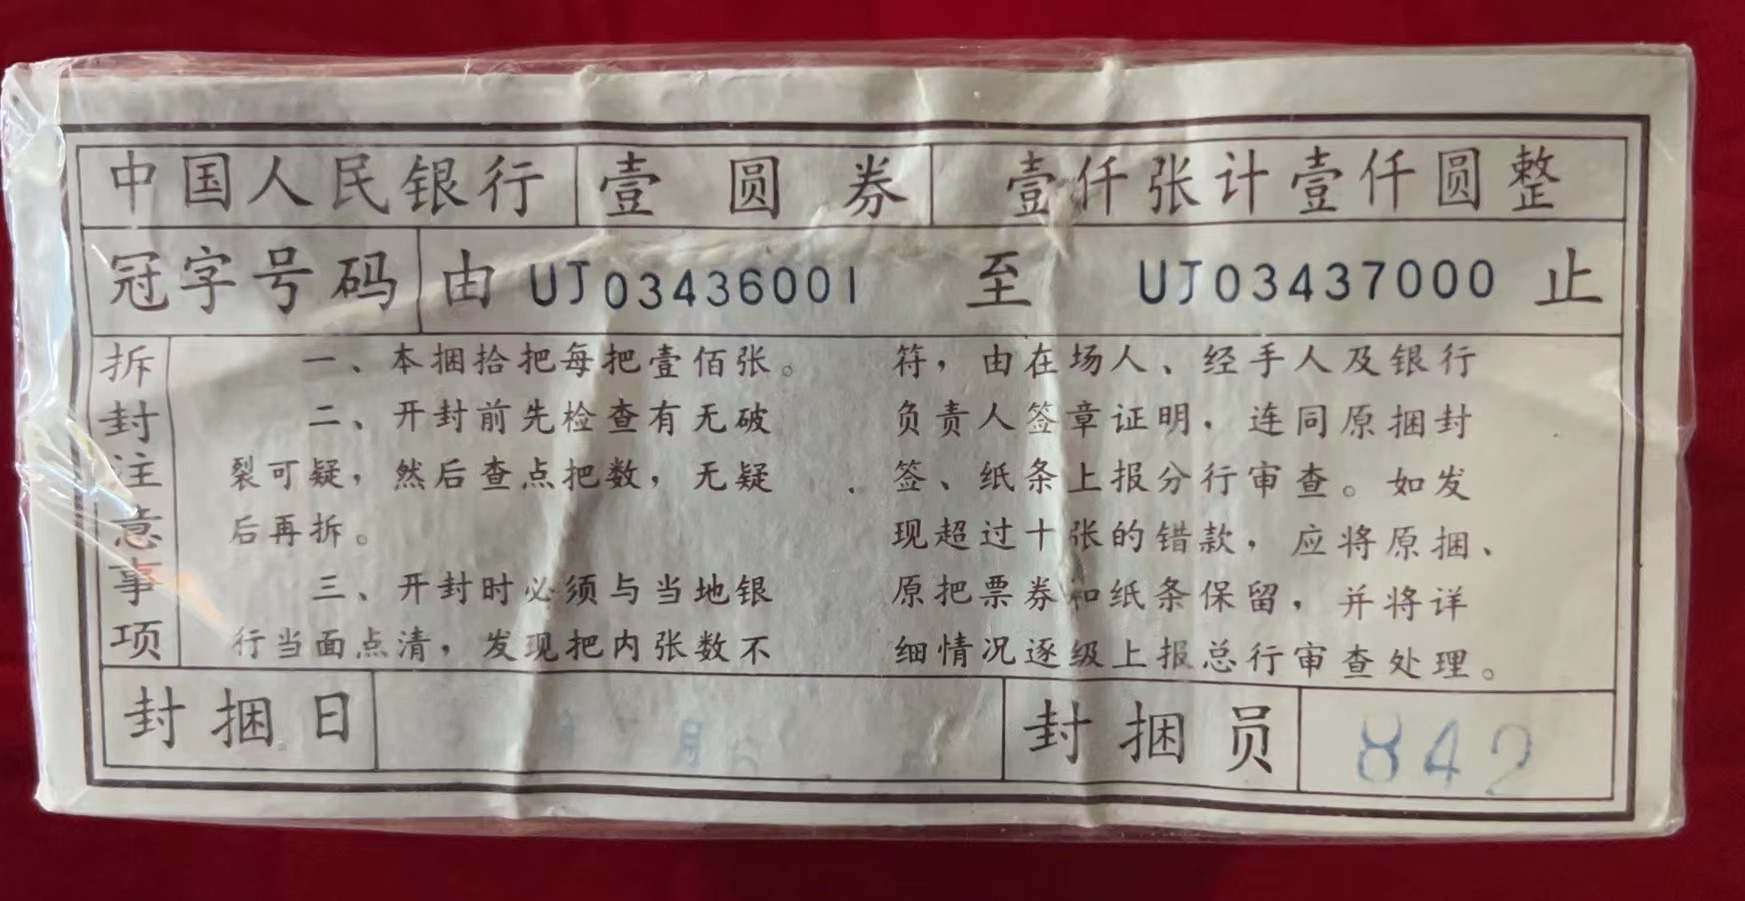 中国人民银行 壹圆券 壹仟张计壹仟圆整
冠字号码 由 UJ03436001 至 UJ03437000 止
拆封注意事项
一、本捆拾把每把壹佰张。
二、开封前先检查有无破
裂可疑，然后查点把数，无疑
后再拆。
三、开封时必须与当地银
行当面点清，发现把内张数不
符，由在场人、经手人及银行
负责人签章证明，连同原捆封
签、纸条上报分行审查。如发
现超过十张的错款，应将原捆、
原把票券和纸条保留，并将详
细情况逐级上报总行审查处理。
封捆日 月 封捆员 842